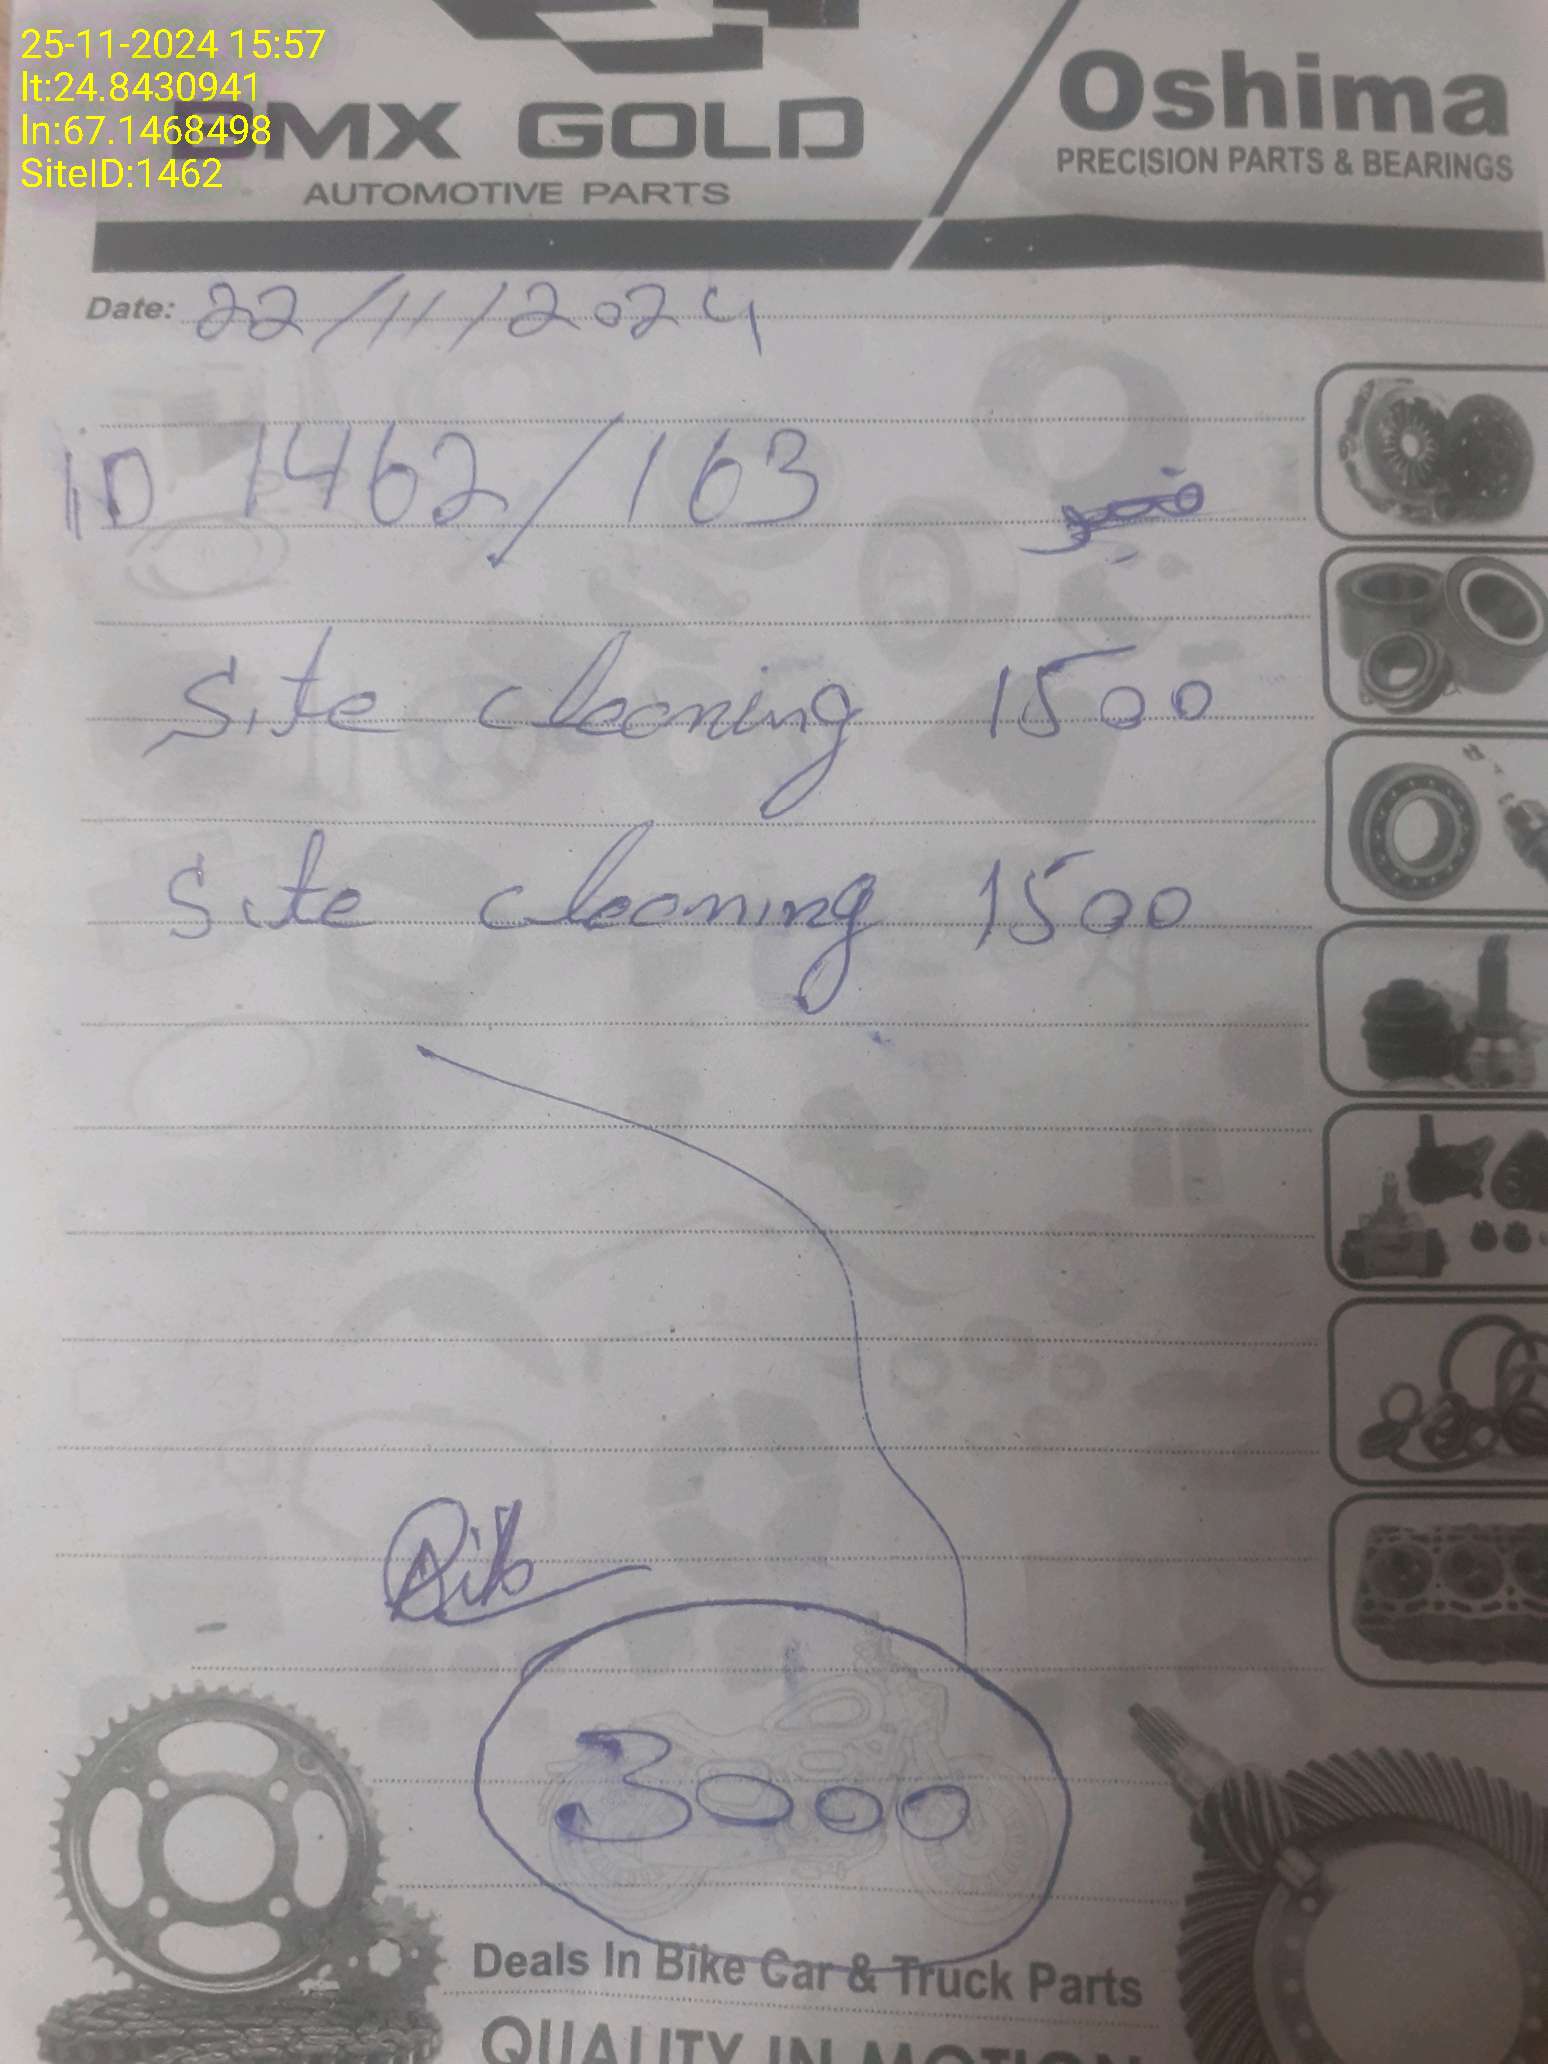 25-11-2024 15:57
lt:24.8430941
ln:67.1468498
SiteID:1462
BMX GOLD
AUTOMOTIVE PARTS
Oshima
PRECISION PARTS & BEARINGS
Date: 22/11/2024
ID 1462/163
Site cleaning 1500
Site cleaning 1500
3000
Deals In Bike Car & Truck Parts
QUALITY IN MOTION